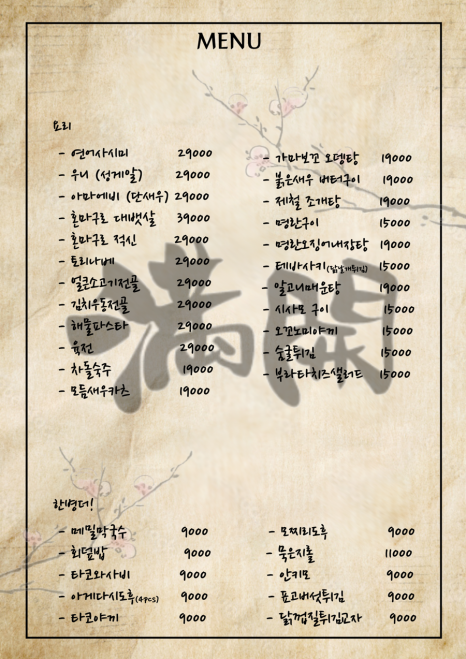 MENU
요리
- 연어사시미 29000
- 우니 (성게알) 29000
- 아마에비 (단새우) 29000
- 혼마구로 대뱃살 39000
- 혼마구로 적신 29000
- 토리나베 29000
- 얼큰소고기전골 29000
- 김치우동전골 29000
- 해물파스타 29000
- 육전 29000
- 차돌숙주 19000
- 모듬새우카츠 19000
- 가마보꼬 오뎅탕 19000
- 붉은새우 버터구이 19000
- 제철 조개탕 19000
- 명란구이 15000
- 명란오징어내장탕 19000
- 테바사키(닭날개튀김) 15000
- 알고니매운탕 19000
- 시사모 구이 15000
- 오꼬노미야끼 15000
- 숨굴튀김 15000
- 부라타치즈샐러드 15000
満開
한병더!
- 메밀막국수 9000
- 회덮밥 9000
- 타코와사비 9000
- 아게다시도후(4pcs) 9000
- 타코야끼 9000
- 모찌리도후 9000
- 묵은지롤 11000
- 안키모 9000
- 표고버섯튀김 9000
- 닭껍질튀김교자 9000